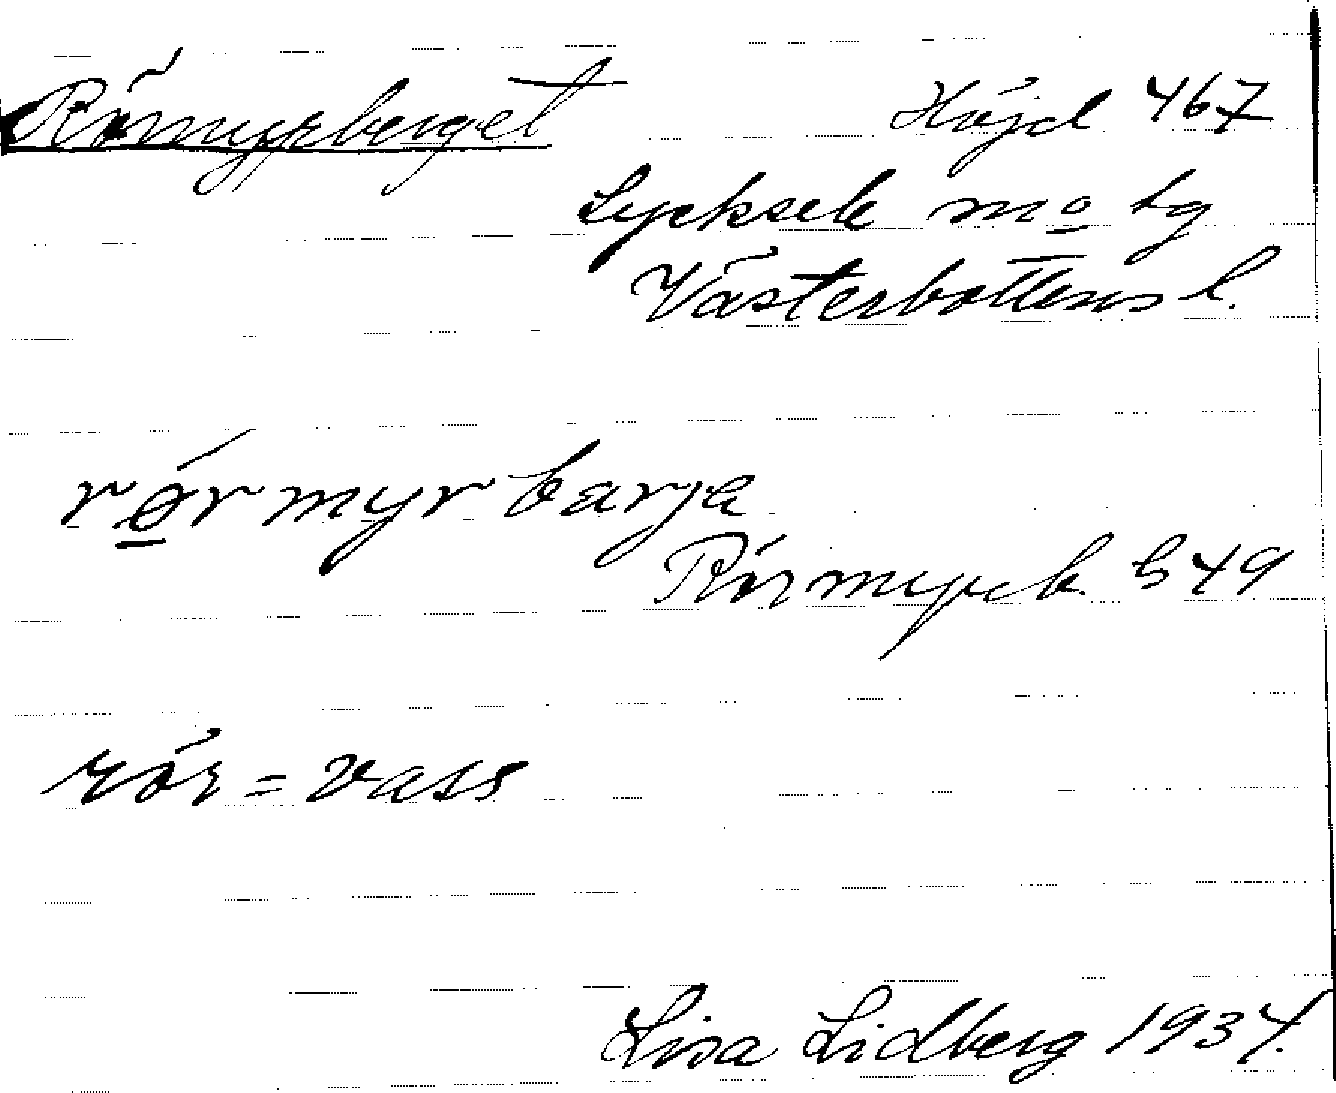 Rörmyrberget Höjd 467
Lycksele m o tg
Västerbottens l.
rǿ̲rmyrbarja
Rörmyrb. b 49
rör = vass
Lisa Lidberg 1934.